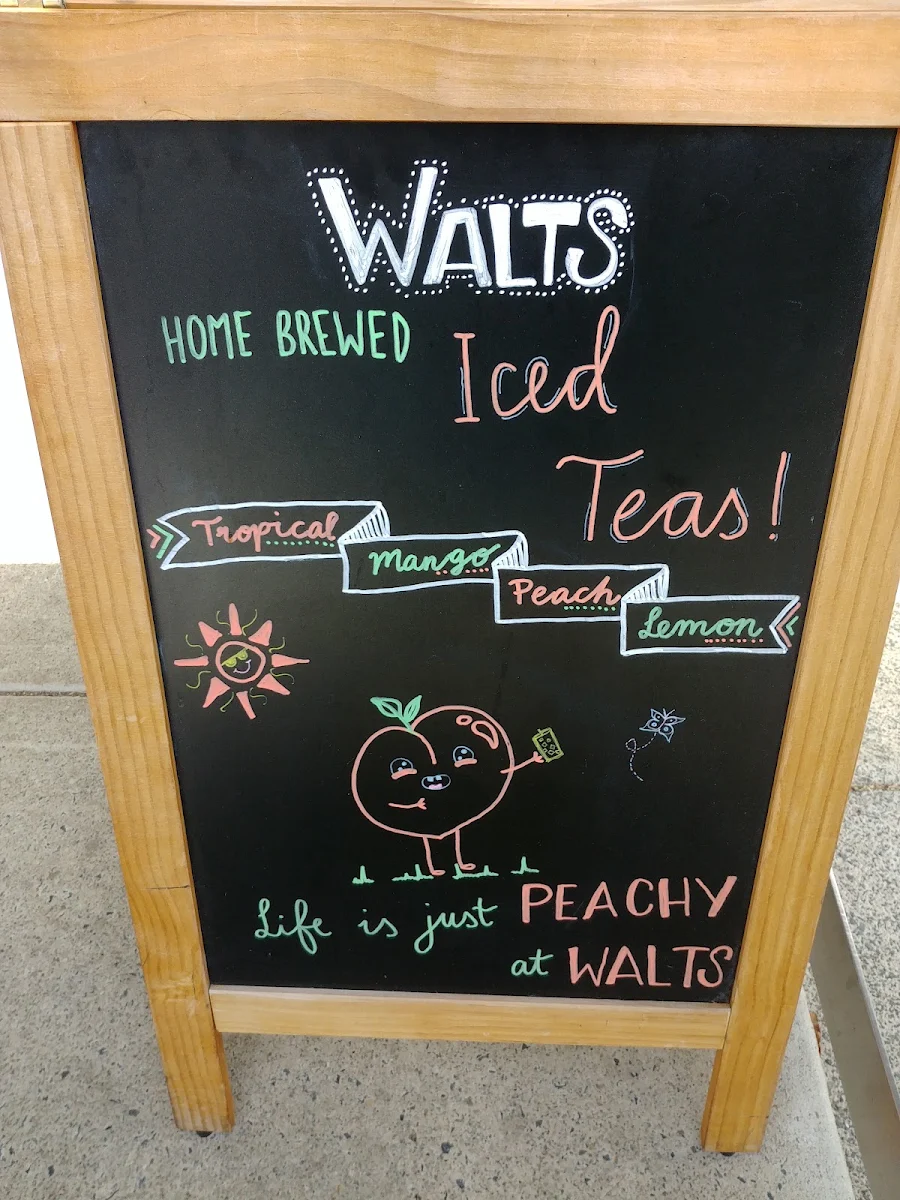 WALTS
HOME BREWED Iced
Teas!
Tropical
Mango
Peach
Lemon
Life is just PEACHY
at WALTS